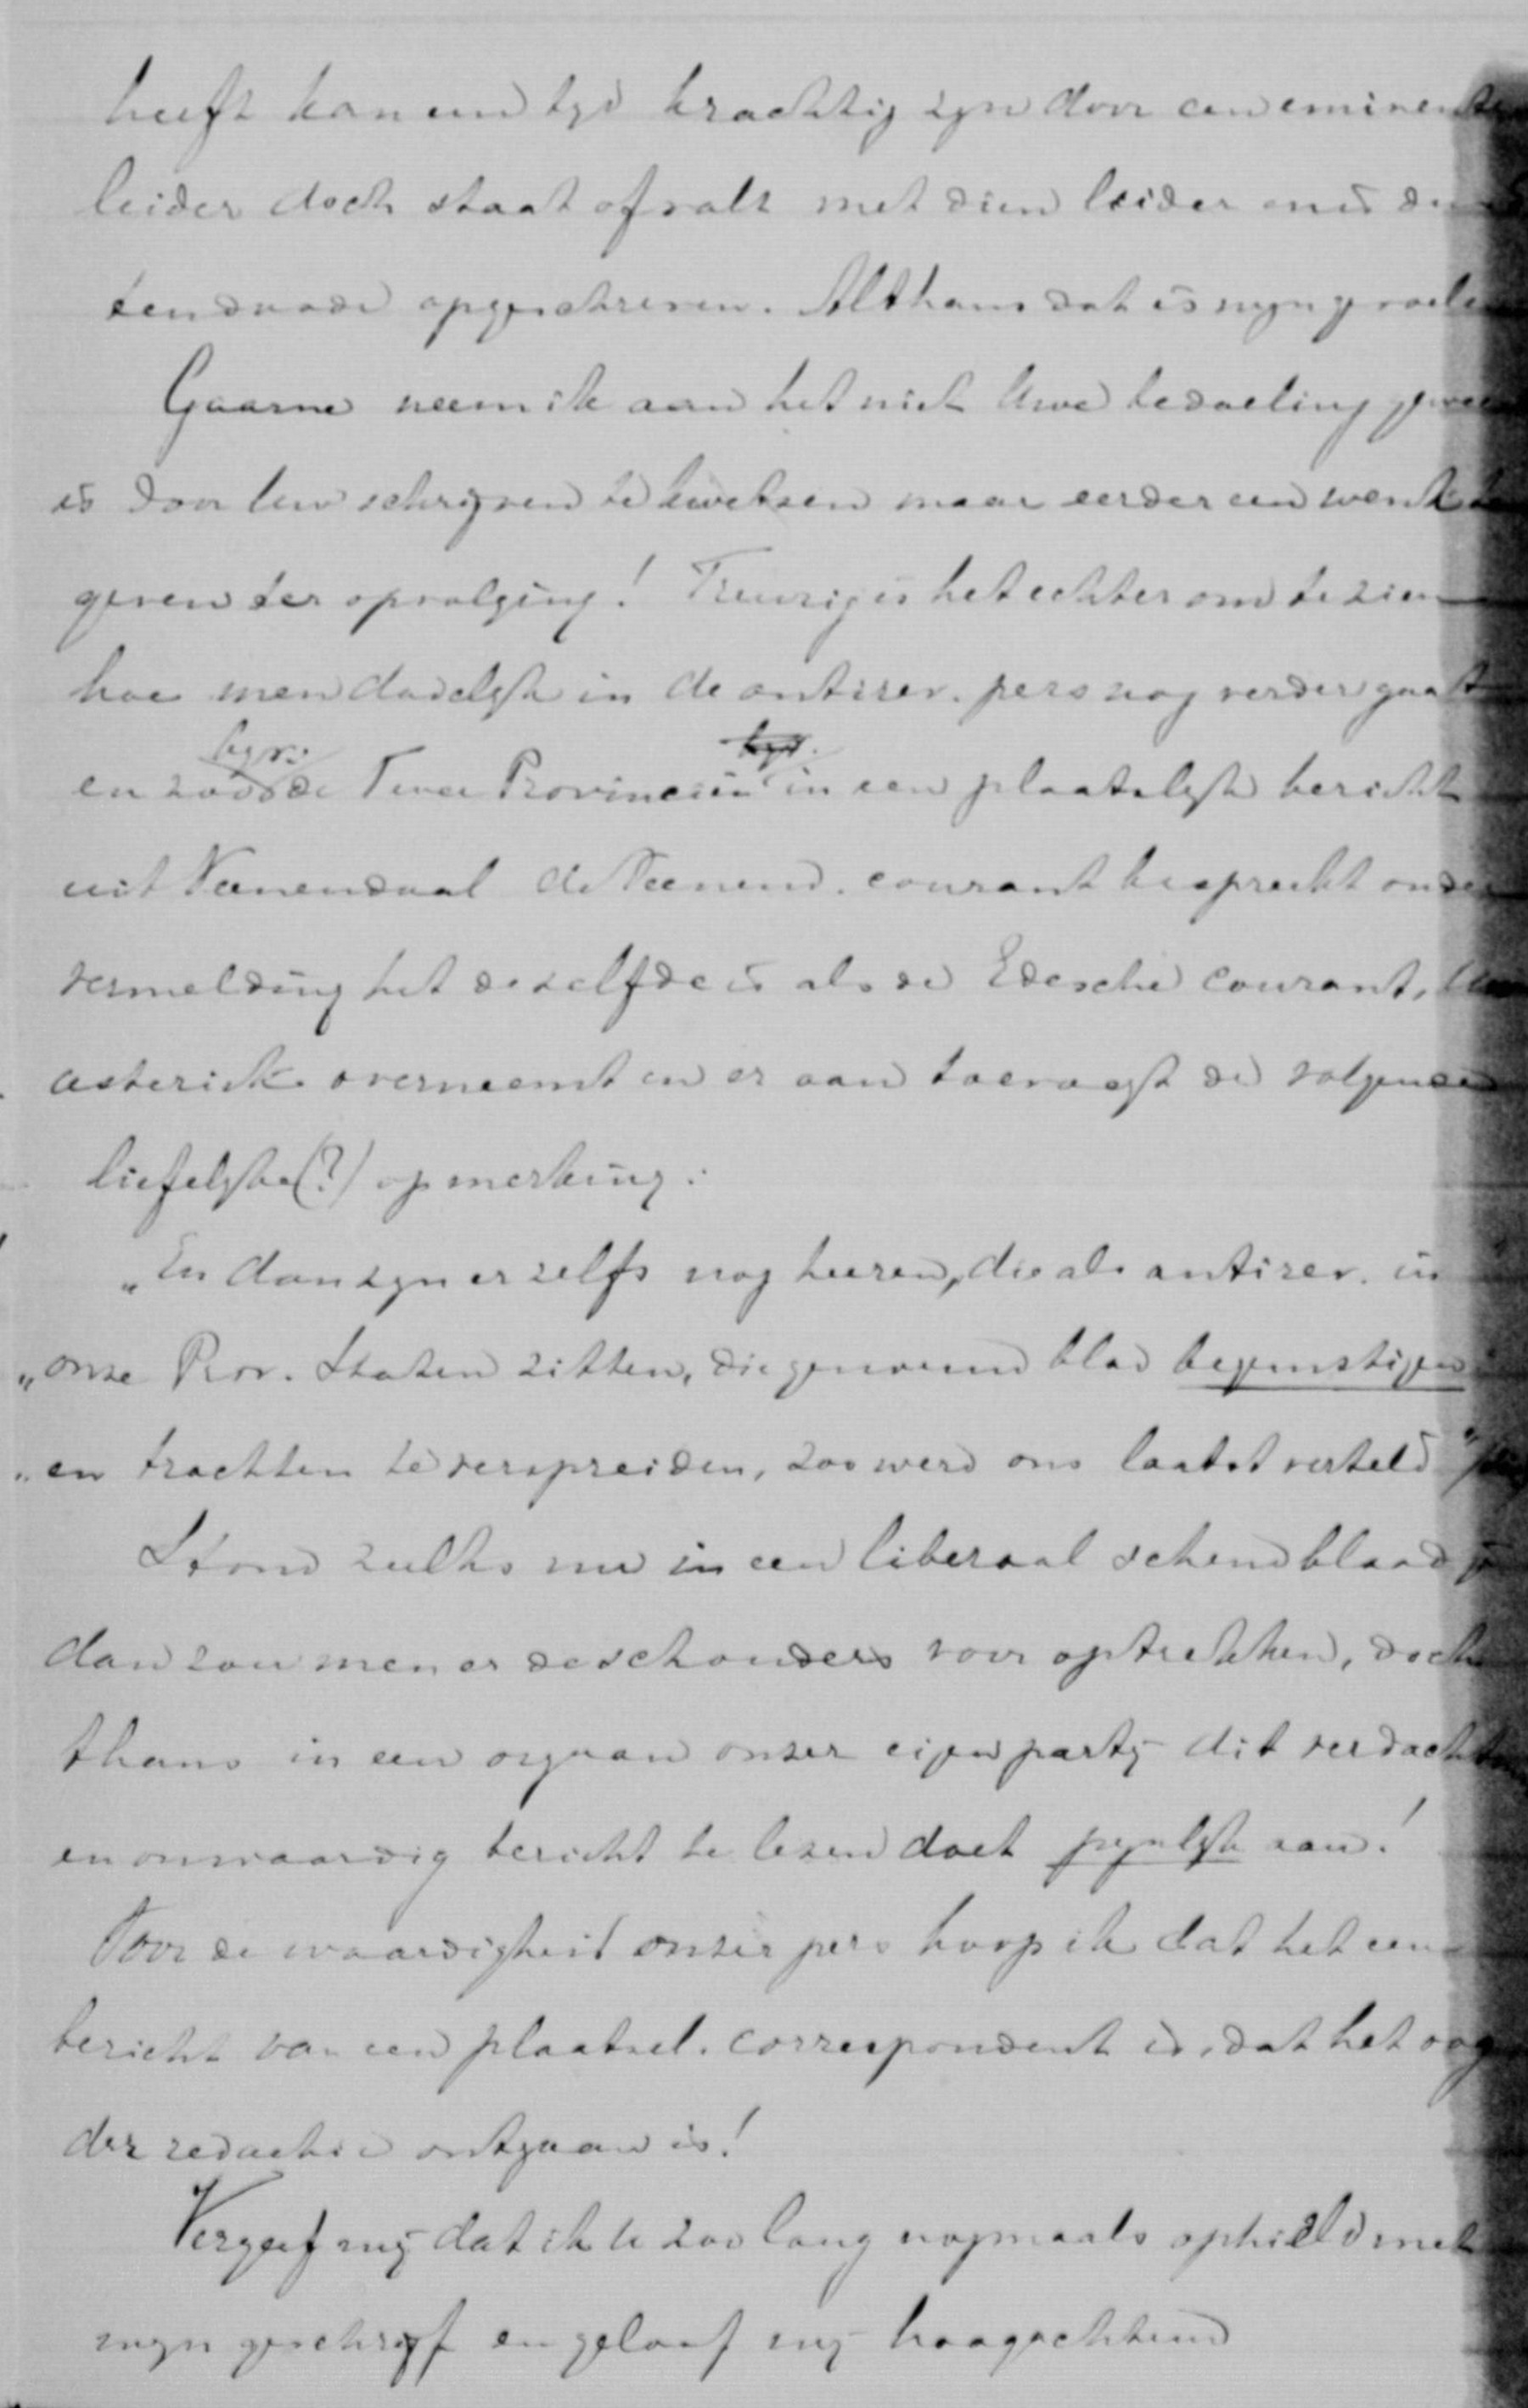 heeft kan een tyd krachtig zyn door een eminenten
leider doch staat of valt met dien leider en is den
ten doode opgeschreven. Althans dat is myn gevoelen
Gaarne neem ik aan het niet Uwe bedoeling geweest
is door Uw schryven te kwetsen maar eerder een wenk te
geven ter opvolging! Treurig is het echter om te zien
hoe men dadelyk in de antirev. pers nog verder gaat
byv.
en zoo de Twee Provincien in een plaatselyk bericht
uit Veenendaal de Veenend. courant bespreekt onder
vermelding het dezelfde is als de Edesche Courant, Uw
asterisk overneemt en er aan toevoegt de volgende
liefelyke (?) opmerking:
„En dan zyn er zelfs nog heeren, die als antirev. in
„onze Prov. Staten zitten, die genoemd blad begunstigen
„en trachten te verspreiden, zoo werd ons laatst verteld"
Stond zulks nu in een liberaal schendblaadje
dan zou men er de schouders voor optrekken, doch
thans in een orgaan onzer eigen party dit verdacht
en onwaardig bericht te lezen doet pynlyk aan!
Voor de waardigheid onzer pers hoop ik dat het een
bericht van een plaatsel. correspondent is, dat het oog
der redactie ontgaan is!
Vergeef my dat ik U zoo lang nogmaals ophield met
myn geschryf en geloof my hoogachtend